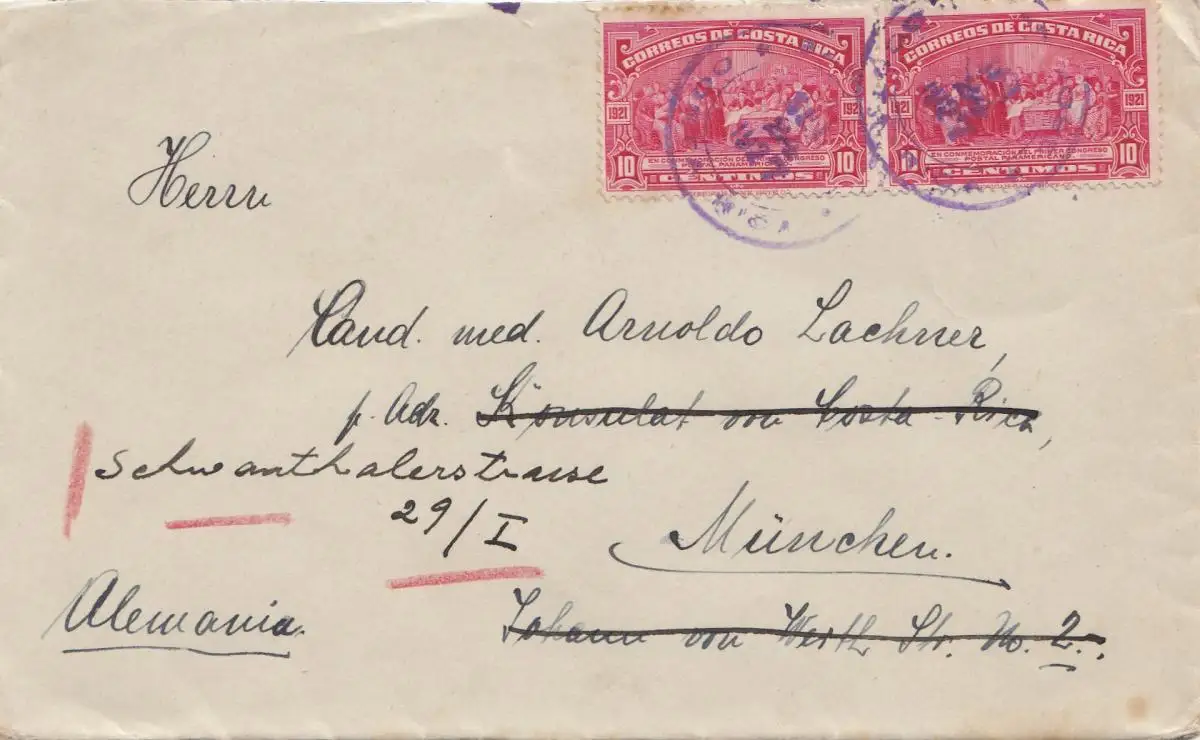 CORREOS DE COSTA RICA
1921 1921
EN CONMEMORACIÓN DEL PRIMER CONGRESO
POSTAL PANAMERICANO
10 CENTIMOS 10
CORREOS DE COSTA RICA
1921 1921
EN CONMEMORACIÓN DEL PRIMER CONGRESO
POSTAL PANAMERICANO
10 CENTIMOS 10
Herrn
Cand. med. Arnoldo Lachner,
p. Adr. Konsulat von Costa-Rica,
Schwanthalerstrasse
29/I
München.
Alemania.
Johann von Werth Str. No. 2.